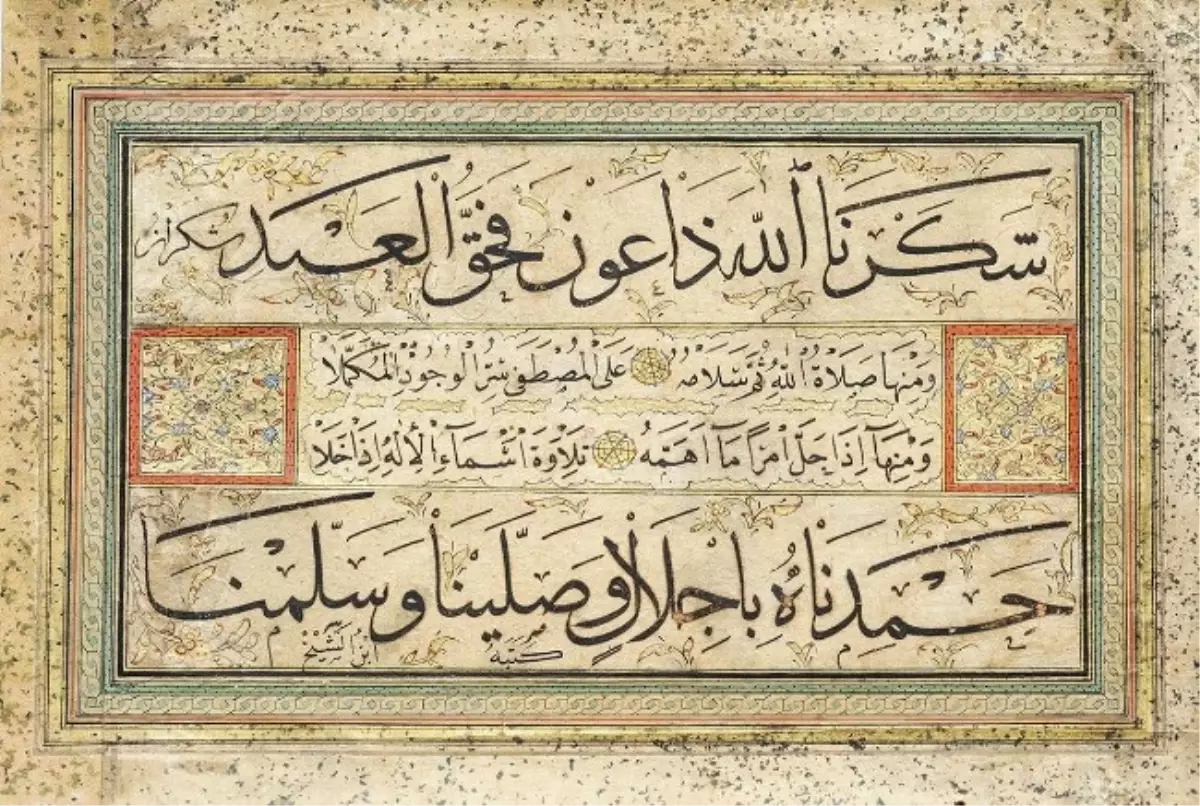 شكرنا الله ذا عون فحق العبد شكرا ان
ومنها صلاة الله ثم سلامه على المصطفى سر الوجود المكملا
ومنها اذا جل امرا ما اهمه تلاوة اسماء الاله اذا خلا
حمدناه باجلال وصلينا وسلمنا
كتبه ابن الشيخ